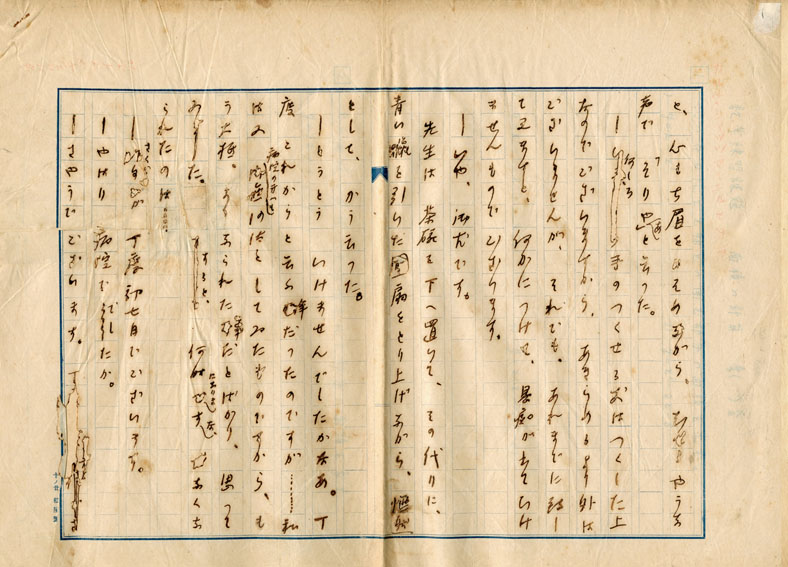 と、心もち眉をひそめながら、
声で繰り返と云つた。
―手のつくせる丈はつくした上
なのでございますから、あきらめるより外は
ございませんが、それでも、あれまでに致し
て見ますと、何かにつけて、愚痴が出ていけ
ませんものでございます。
―いや、御尤です。
先生は、茶碗を下へ置いて、その代りに、
青い蝋を引いた団扇をとり上げながら、憮然
として、かう云つた。
―とうとういけませんでしたかなあ。丁
度これからと云ふ年だつたのですが……私
は又、病院の方へも御無沙汰としてゐたものですから、も
う大抵、よくなられた事だとばかり、思つて
ゐました。すると、何時です、なくな
られたのは……
―昨日が、丁度初七日でございます。
―やはり病院でしたか。
―さやうでございます。